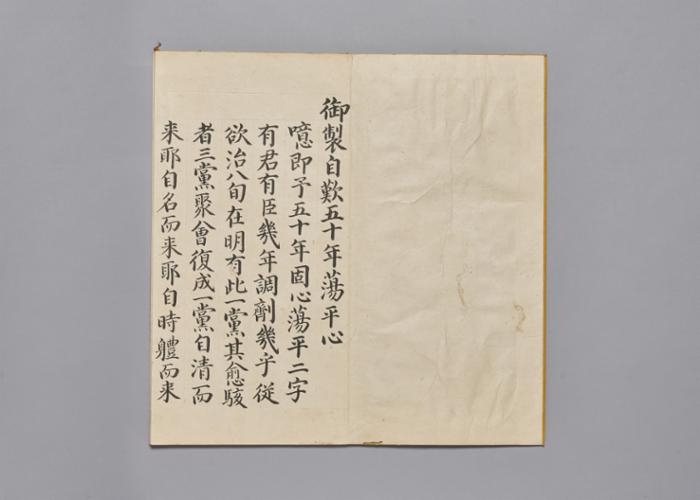 御製自歎五十年蕩平心
噫即予五十年固心蕩平二字
有君有臣幾年調劑幾乎従
欲治八旬在明有此一黨其愈駭
者三黨聚會復成一黨自清而
来耶自名而来耶自時軆而来